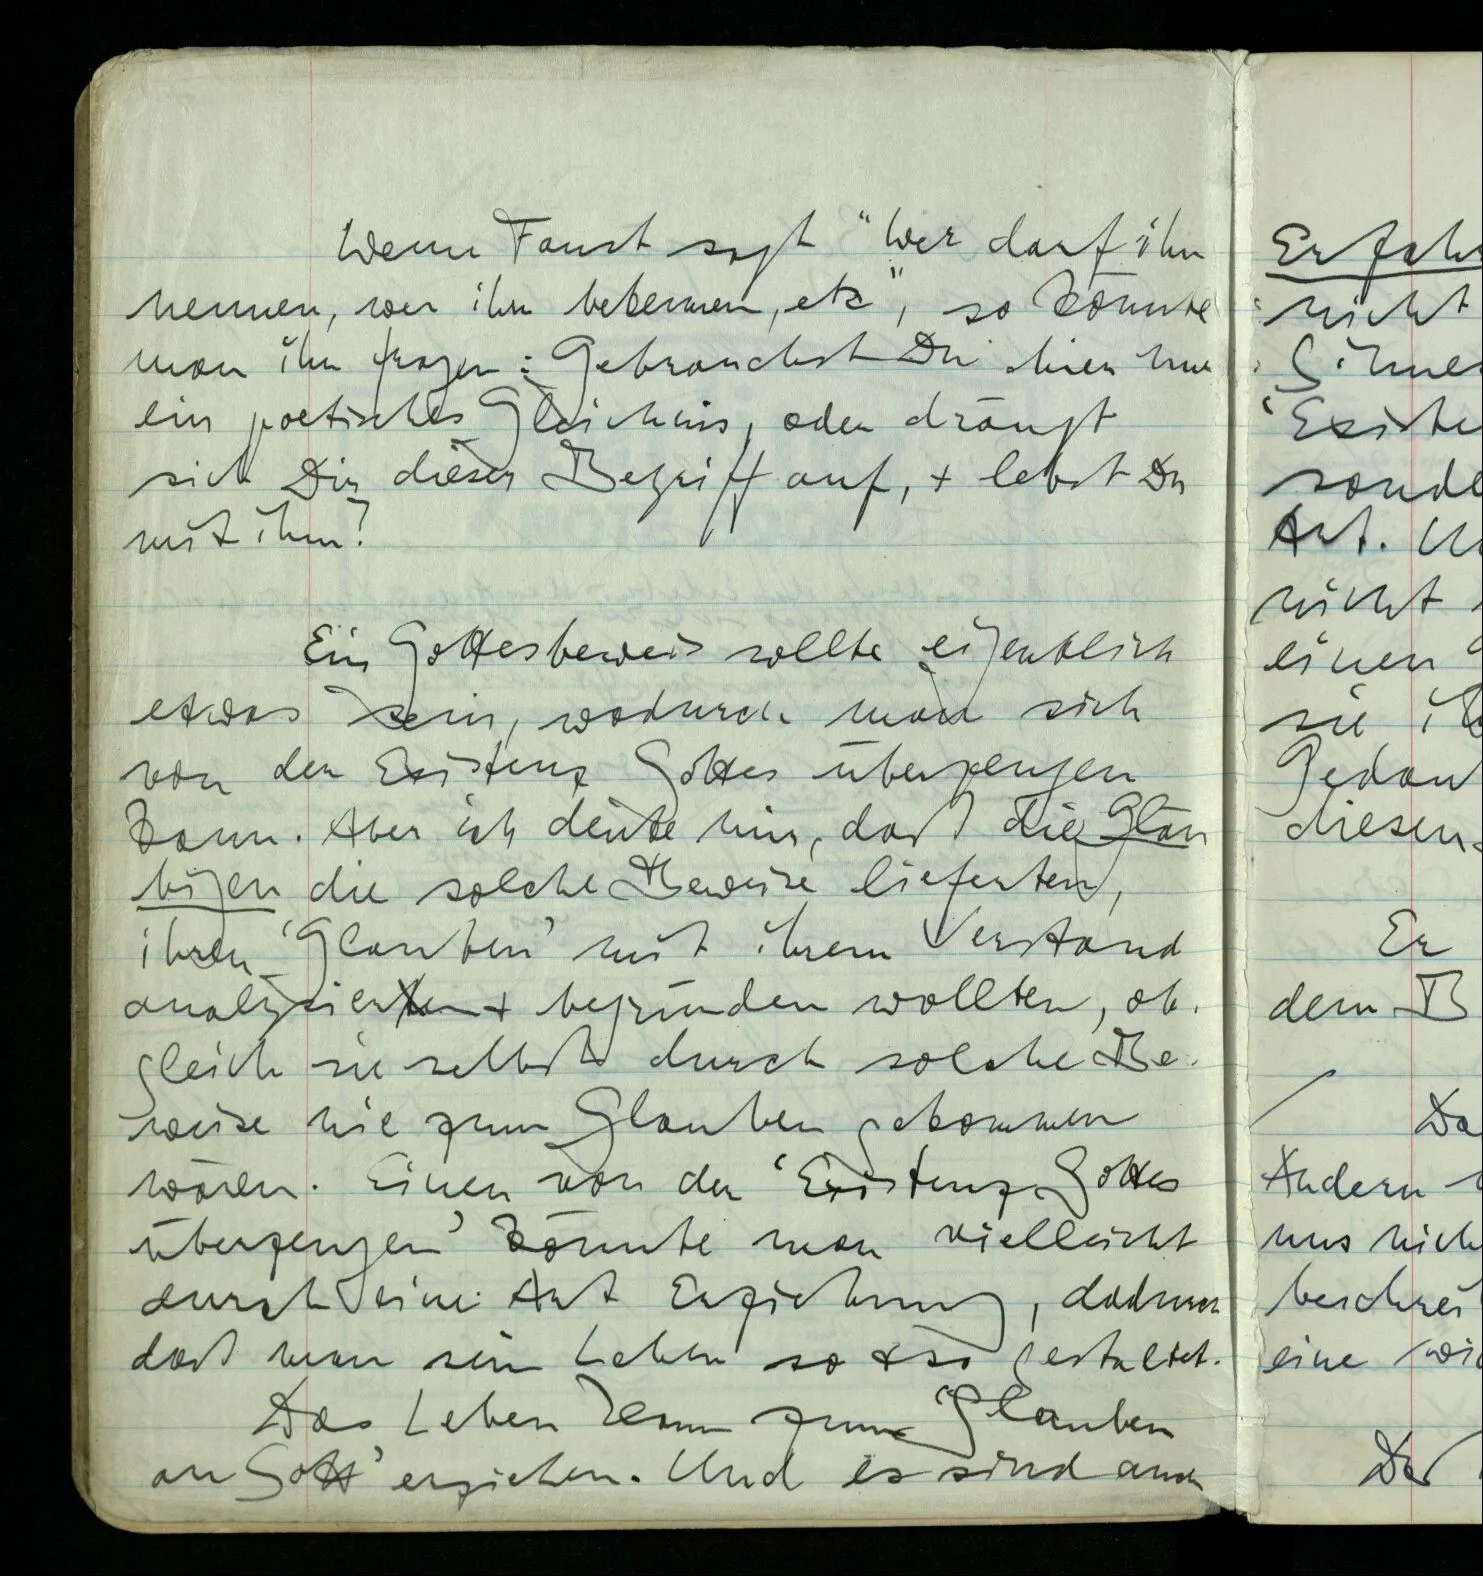 Wenn Faust sagt "Wer darf ihn
nennen, wer ihn bekennen, etc", so könnte
man ihn fragen: Gebrauchst Du hier nur
ein poetisches Gleichnis, oder drängt
sich Dir dieser Begriff auf, + lebst Du
mit ihm?
Ein Gottesbeweis sollte eigentlich
etwas sein, wodurch man sich
von der Existenz Gottes überzeugen
kann. Aber ich denke mir, daß die Gläu
bigen die solche Beweise lieferten,
ihren 'Glauben' mit ihrem Verstand
analysieren + begründen wollten, ob-
gleich sie selbst durch solche Be-
weise nie zum Glauben gekommen
wären. Einen von der 'Existenz Gottes
überzeugen' könnte man vielleicht
durch eine Art Erziehung, dadurch
daß man sein Leben so & so gestaltet.
Das Leben kann zum "Glauben
an Gott" erziehen. Und es sind auch
Erfah
nicht
Sinnes
'Existe
sonde
Art. U
nicht
einen
sie
Gedan
diesen
Er
dem B
/ Da
Andern
uns nich
beschrei
eine